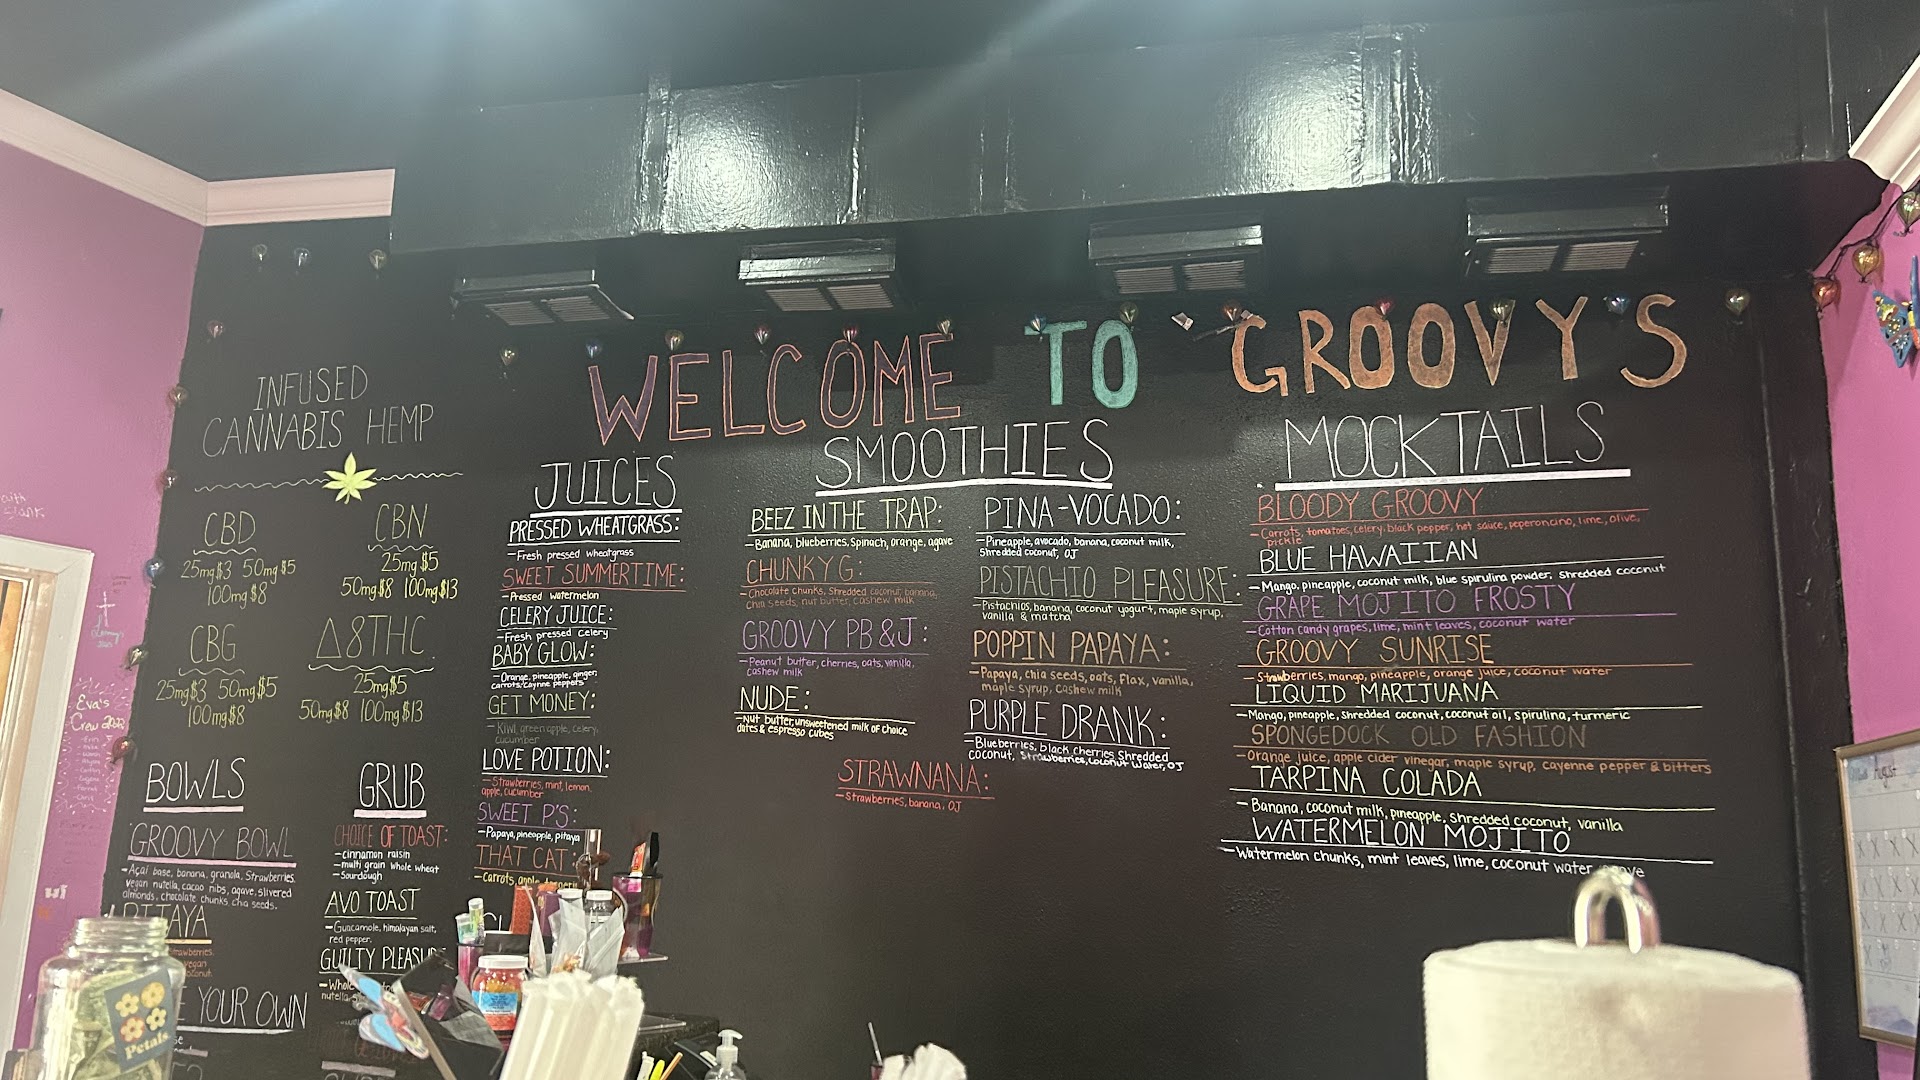 WELCOME TO GROOVY'S
INFUSED
CANNABIS HEMP
CBD
25mg $3 50mg $5
100mg $8
CBN
25mg $5
50mg $8 100mg $13
CBG
25mg $3 50mg $5
100mg $8
Δ8THC
25mg $5
50mg $8 100mg $13
BOWLS
GROOVY BOWL
-Açai base, banana, granola, Strawberries,
vegan nutella, cacao nibs, agave, slivered
almonds, chocolate chunks, chia seeds.
PITAYA
strawberries,
vegan
coconut.
YOUR OWN
GRUB
CHOICE OF TOAST:
-cinnamon raisin
-multi grain whole wheat
-Sourdough
AVO TOAST
-Guacamole, himalayan salt,
red pepper.
GUILTY PLEASU
-Whole
nutella,
JUICES
PRESSED WHEATGRASS:
-Fresh pressed wheatgrass
SWEET SUMMERTIME:
-Pressed watermelon
CELERY JUICE:
-Fresh pressed celery
BABY GLOW:
-Orange, pineapple, ginger,
carrots, caynne peppers
GET MONEY:
-Kiwi, green apple, celery,
cucumber
LOVE POTION:
-Strawberries, mint, lemon,
apple, cucumber
SWEET P'S:
-Papaya, pineapple, pitaya
THAT CAT:
-Carrots, apple,
SMOOTHIES
BEEZ IN THE TRAP:
-Banana, blueberries, spinach, orange, agave
CHUNKY G:
-Chocolate chunks, Shredded coconut, banana,
chia seeds, nut butter, cashew milk
GROOVY PB&J:
-Peanut butter, cherries, oats, vanilla,
cashew milk
NUDE:
-Nut butter, unsweetened milk of choice
dates & espresso cubes
STRAWNANA:
-Strawberries, banana, OJ
PINA-VOCADO:
-Pineapple, avocado, banana, coconut milk,
Shredded coconut, OJ
PISTACHIO PLEASURE:
-Pistachios, banana, coconut yogurt, maple syrup,
vanilla & matcha
POPPIN PAPAYA:
-Papaya, chia seeds, oats, flax, vanilla,
maple syrup, cashew milk
PURPLE DRANK:
-Blueberries, black cherries, Shredded
coconut, Strawberries, coconut water, OJ
MOCKTAILS
BLOODY GROOVY
-Carrots, tomatoes, celery, black pepper, hot sauce, peperoncino, lime, olive,
pickle
BLUE HAWAIIAN
-Mango, pineapple, coconut milk, blue spirulina powder, shredded coconut
GRAPE MOJITO FROSTY
-Cotton candy grapes, lime, mint leaves, coconut water
GROOVY SUNRISE
-Strawberries, mango, pineapple, orange juice, coconut water
LIQUID MARIJUANA
-Mango, pineapple, shredded coconut, coconut oil, spirulina, turmeric
SPONGEDOCK OLD FASHION
-Orange juice, apple cider vinegar, maple syrup, cayenne pepper & bitters
TARPINA COLADA
-Banana, coconut milk, pineapple, shredded coconut, vanilla
WATERMELON MOJITO
-Watermelon chunks, mint leaves, lime, coconut water, agave
Eva's
Crew 2022
Petals
August